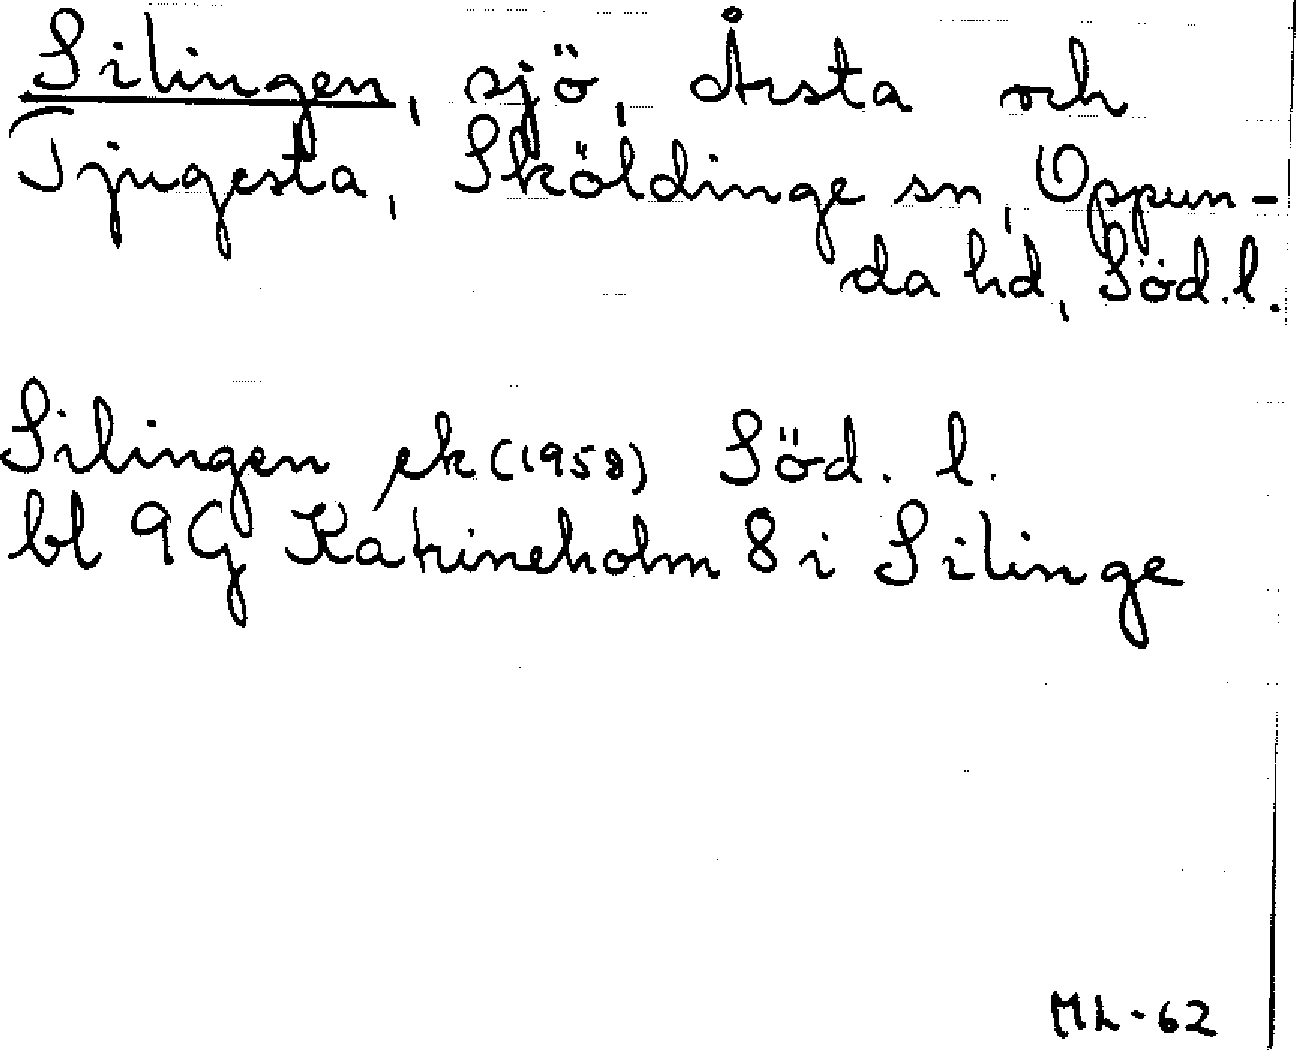 Silingen, sjö, Årsta och
Tjugesta, Sköldinge sn, Oppun-
da hd, Söd. l.
Silingen ek (1958) Söd. l.
bl 9G Katrineholm 8 i Silinge
ML-62